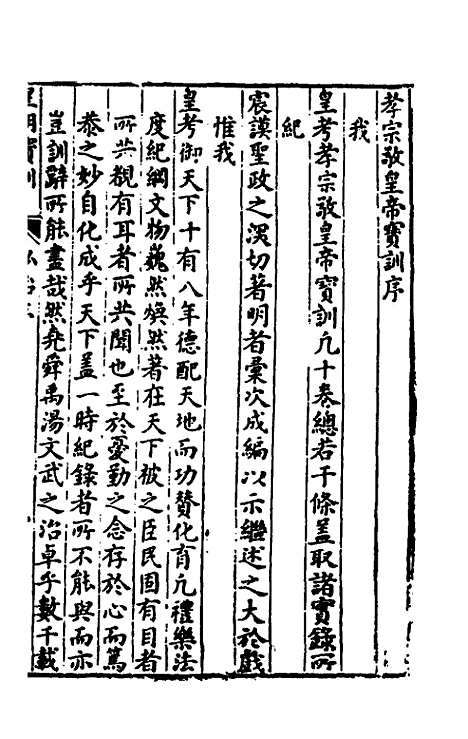 孝宗敬皇帝寶訓序
我
皇考孝宗敬皇帝寶訓凡十卷總若干條蓋取諸實錄所
紀
宸謨聖政之深切著明者彙次成編以示繼述之大於戲
惟我
皇考御天下十有八年德配天地而功贊化育凡禮樂法
度紀綱文物巍然煥然著在天下被之臣民固有目者
所共覩有耳者所共聞也至於憂勤之念存於心而篤
恭之妙自化成乎天下蓋一時紀錄者所不能與而亦
豈訓辭所能盡哉然堯舜禹湯文武之治卓乎數千載
皇明寶訓
弘治